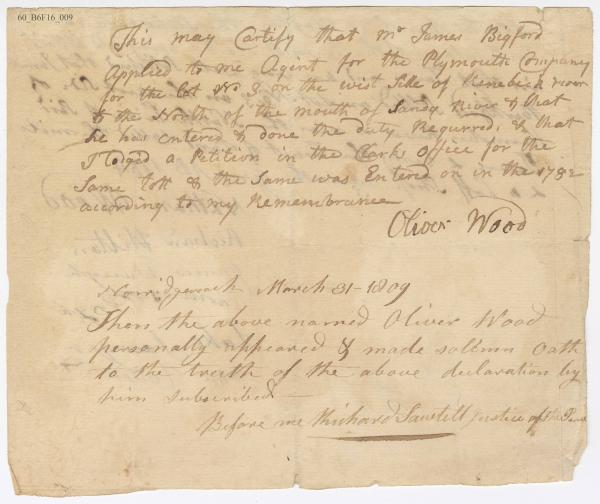 60_B6F16_009
This may Certify that Mr James Bigford
Applied to me Agent for the Plymouth Company
for the lot No 3 on the wist Side of Kenebick river
to the North of the mouth of Sandy River & that
he has entered & done the duty Requrred, & that
I lodged a Petition in the Clark office for the
Same lott & the Same was Entered on in the 1782
according to my Remembrance
Oliver Wood
Norridgewock March 31-1809
Then the above named Oliver Wood
personally appeared & made solemn Oath
to the truth of the above declaration by
him subscribed
Before me Richard Sawtell Justice of the Peace